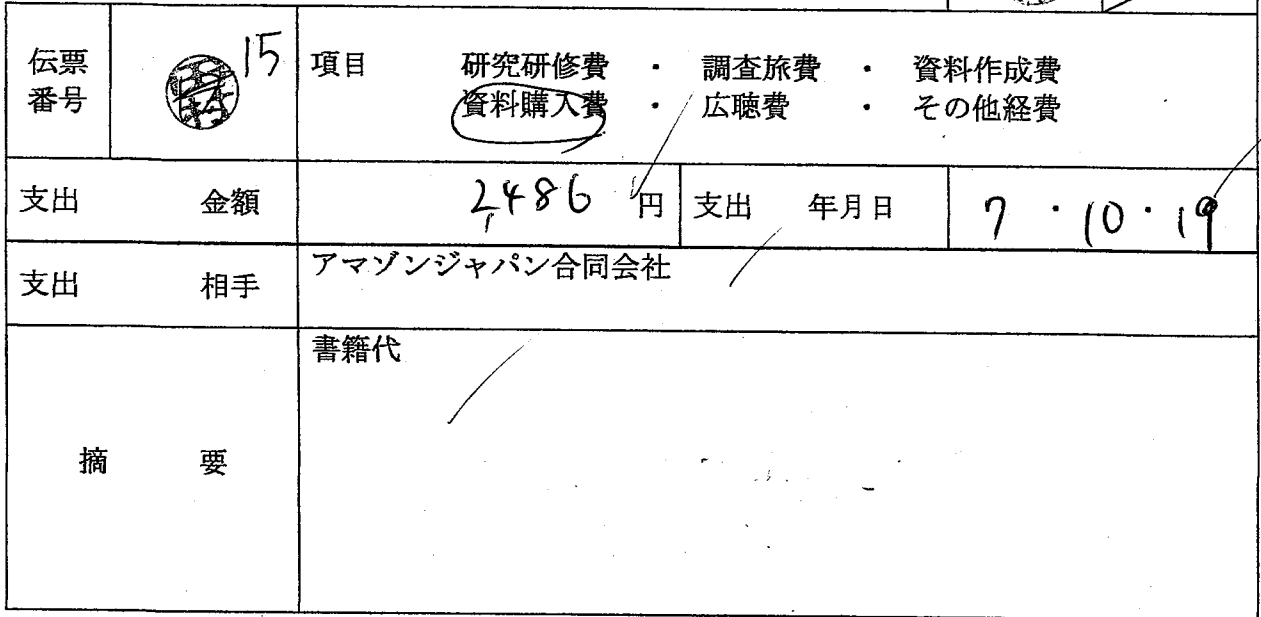 伝票 番号 15 項目 研究研修費 ・ 調査旅費 ・ 資料作成費
資料購入費 ・ 広聴費 ・ その他経費
支出 金額 2,486 円 支出 年月日 7・10・19
支出 相手 アマゾンジャパン合同会社
摘 要 書籍代